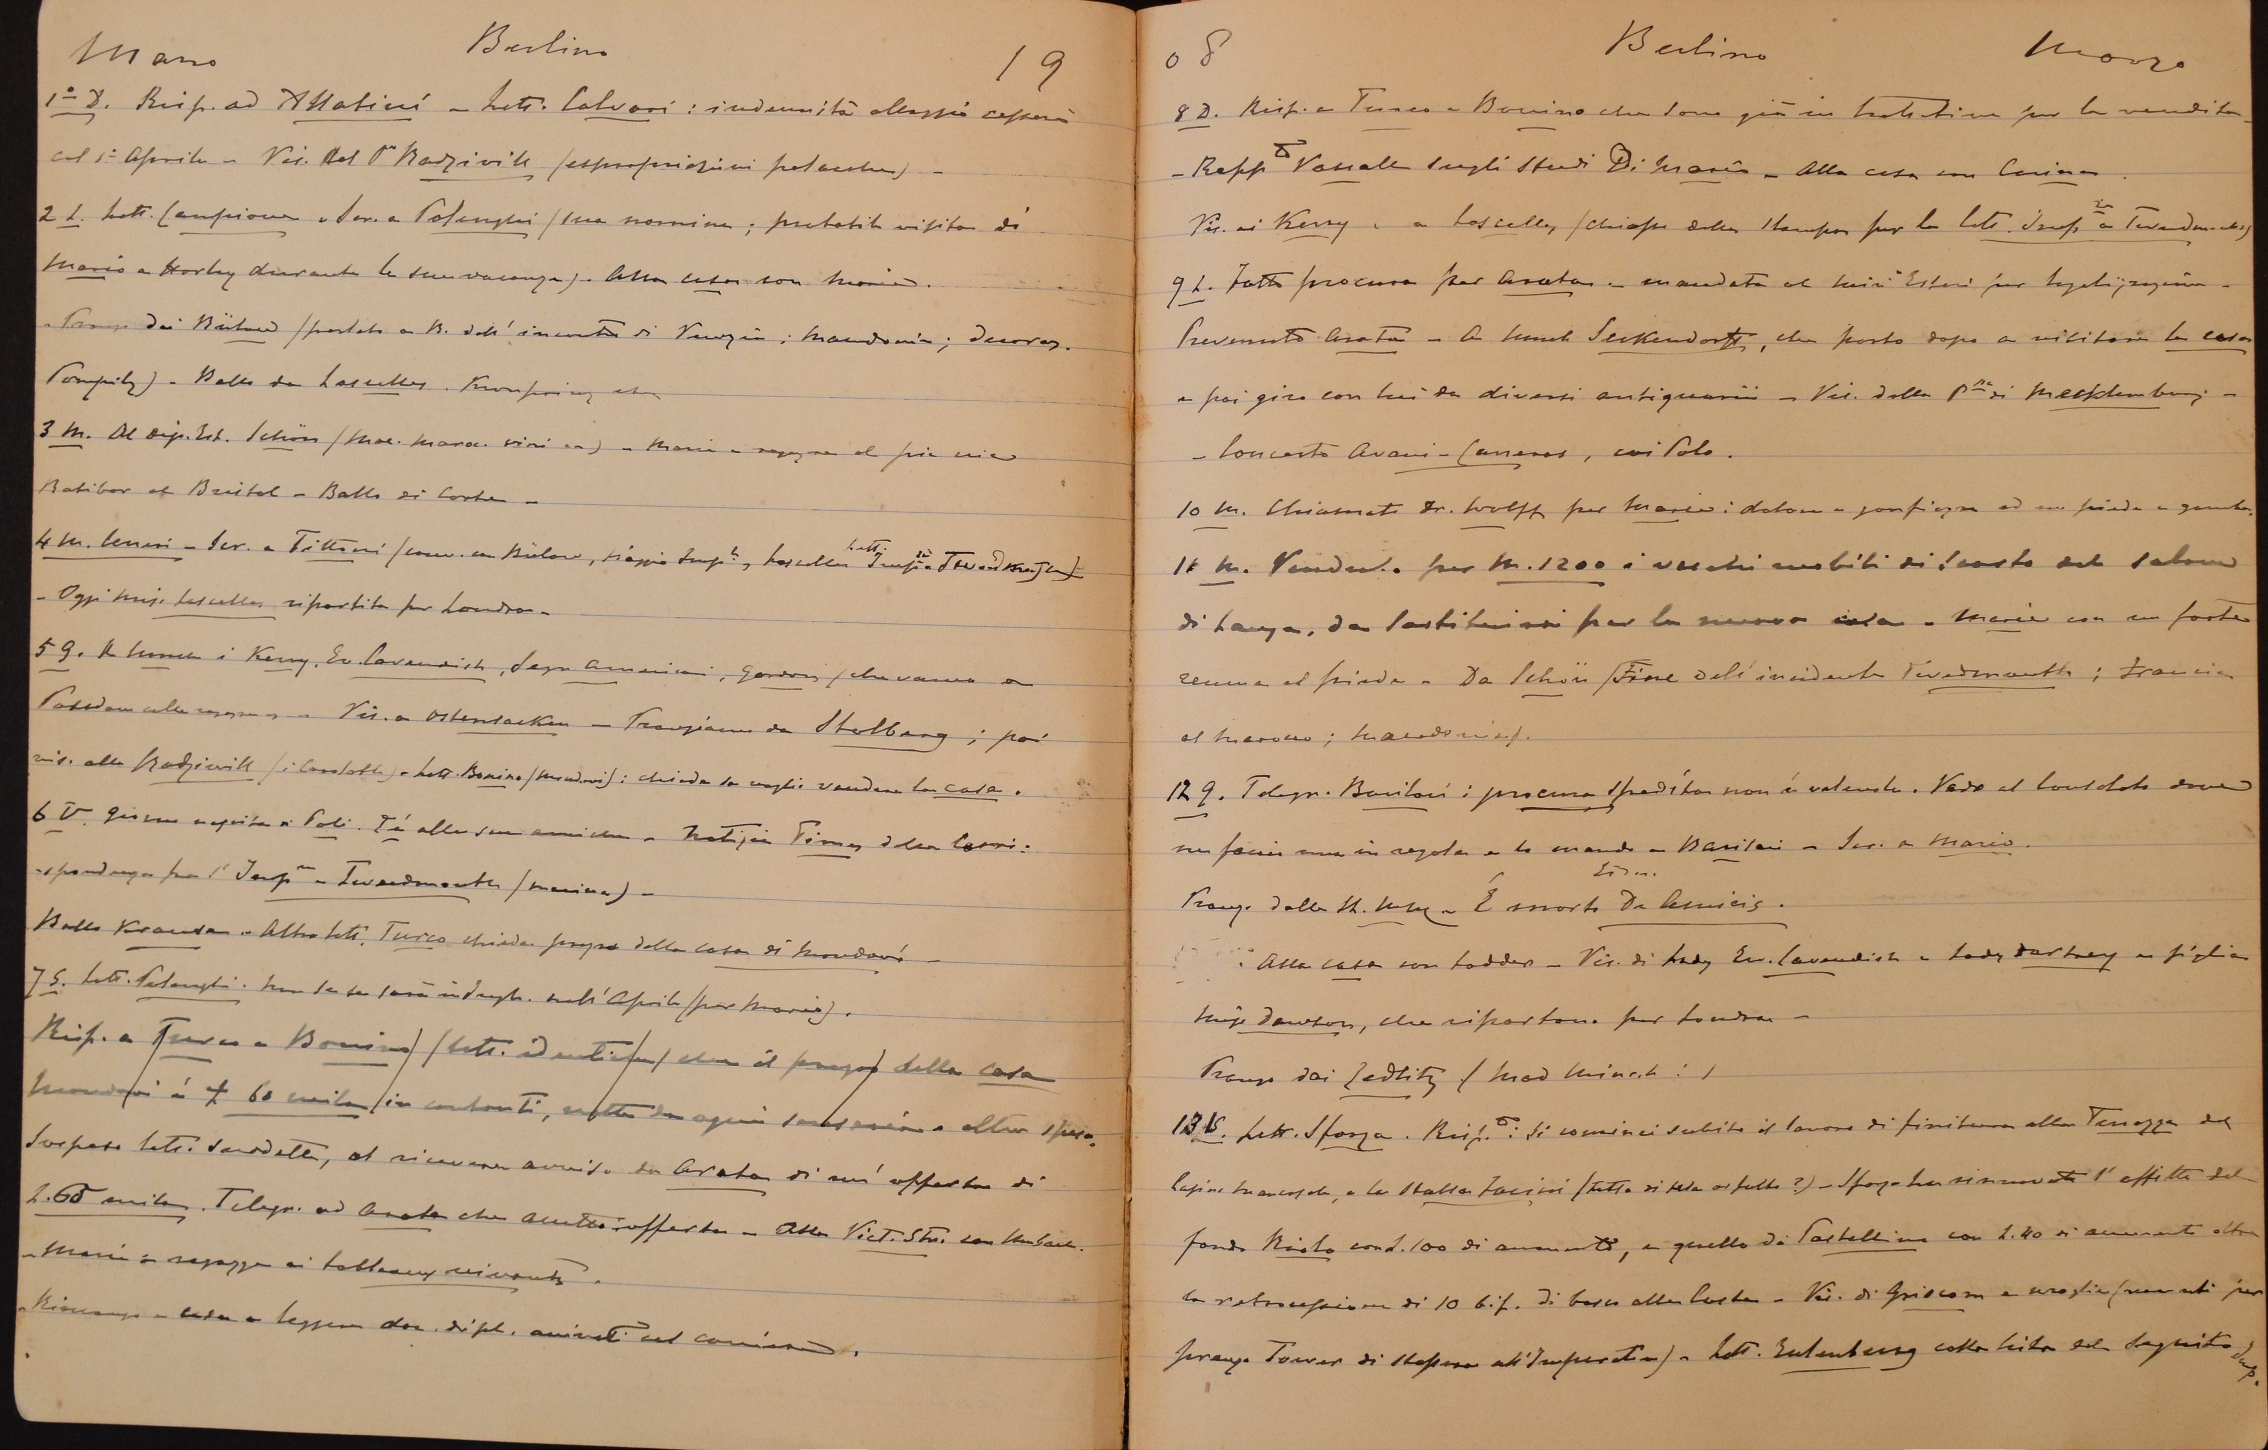 Marzo Berlino 19
1º D. Risp. ad Allatini - Lett. Calvari: indennità alloggio cesserà
col 1º Aprile - Vis. del Pe Radziwill (espropriazioni polacche) -
2 L. Lett. Campione - Scr. a Polenghi (sua nomina; probabile visita di
Mario a Horley durante le sue vacanze). Alla casa con Maria.
- Pranzo dai Bülow (parlato a B. dell'incontro di Venezia; Macedonia; decoraz.
Pompilj) - Ballo da Lascelles. Kronprinz etc.
3 M. Al Dip. Est. Schön (Mac. Maroc. ) - Maria e ragazze al
Ratibor al Bristol - Ballo di Corte -
4 M. Ceneri - Scr. a Tittoni (conv. con Bülow, viaggio Imple, Lascelles lett. Impe a Tweedmouth)
- Oggi Miss Lascelles ripartita per Londra -
5 G. A lunch i Kerry, Ev. Cavendish, Segr. Americani, Gordon (che vanno a
Potsdam colle ragazze) - Vis. a Ostensacken - Pranziamo da Stolberg; poi
vis. alla Radziwill - Lett. Bonino (Mondovì): chiede se voglio vendere la casa.
6 V. Giorno nascita di Poli. Tè alle sue amiche - Notizia Times della corri-
spondenza fra l'Impre e Tweedmouth (marina) -
Ballo Krause - Altra lett. Turco chiede prezzo della casa di Mondovì -
7 S. Lett. Polenghi. Non sa se sarà in Ingh. nell'Aprile (per Mario).
Risp. a Turco e Bonino (lett. identiche) che il prezzo della casa
Mondovì è £ 60 mila in contanti, netto da ogni senseria e altre spese.
Sospeso lett. suddette, al ricevere avviso da Arata di un'offerta di
L. 65 mila. Telegr. ad Arata che accetto offerta - Alla Vict. Str. con
- Maria e ragazze ai tableaux vivants.
- Rimango a casa a leggere doc. dipl. arrivati col corriere.
08 Berlino Marzo
8 D. Risp. a Turco e Bonino che sono già in trattative per la vendita -
- Rappto Vassallo sugli studi di Mario - Alla casa con Cerina.
Vis. ai Kerry e a Lascelles (chiasso della stampa per la lett. Impre a Tweedmouth)
9 L. Fatto procura per Arata - mandata al Minro Esteri per legalizzazione -
Prevenuto Arata - A lunch Seckendorff, che porto dopo a visitare la casa
e poi giro con lui da diversi antiquarii - Vis. della Pssa di Mecklenburg -
- Concerto Avani-Carreras, coi Polo.
10 M. Chiamato Dr. Wolff per Maria: dolore e gonfiezza ad un piede e gamba.
11 M. Venduto per M. 1200 i vecchi mobili di scarto del salone
di Lanza, da sostituirsi per la nuova casa - Maria con un forte
reuma al piede - Da Schön (Fine dell'incidente Tweedmouth; Francia
al Marocco; Macedonia).
12 G. Telegr. Basilari: procura spedita non è valevole. Vado al Consolato dove
ne faccio una in regola e la mando a Basilari - Scr. a Mario.
Pranzo dalla - È morto Edm. De Amicis.
Alla casa con Lodder - Vis. di Lady Ev. Cavendish e Lady Dartrey e figlia
Miss Dawson, che ripartono per Londra -
Pranzo dai Zedlitz
13 V. Lett. Sforza. Rispo: si cominci subito il lavoro di finitura alla Terrazza del
Casino Mancasale, e la stalla Zacini (tetto di tela asfalto?) - Sforza ha rinnovato l'affitto del
fondo Riolo con L. 100 di aumento, e quello di Castellina con L. 40 di aumento oltre
la retrocessione di 10 bif. di bosco alla Costa - Vis. di Griscom e moglie (venuti per
pranzo Tower di stassera all'Imperatore) - Lett. Eulenburg colla lista del Seguito Imp.